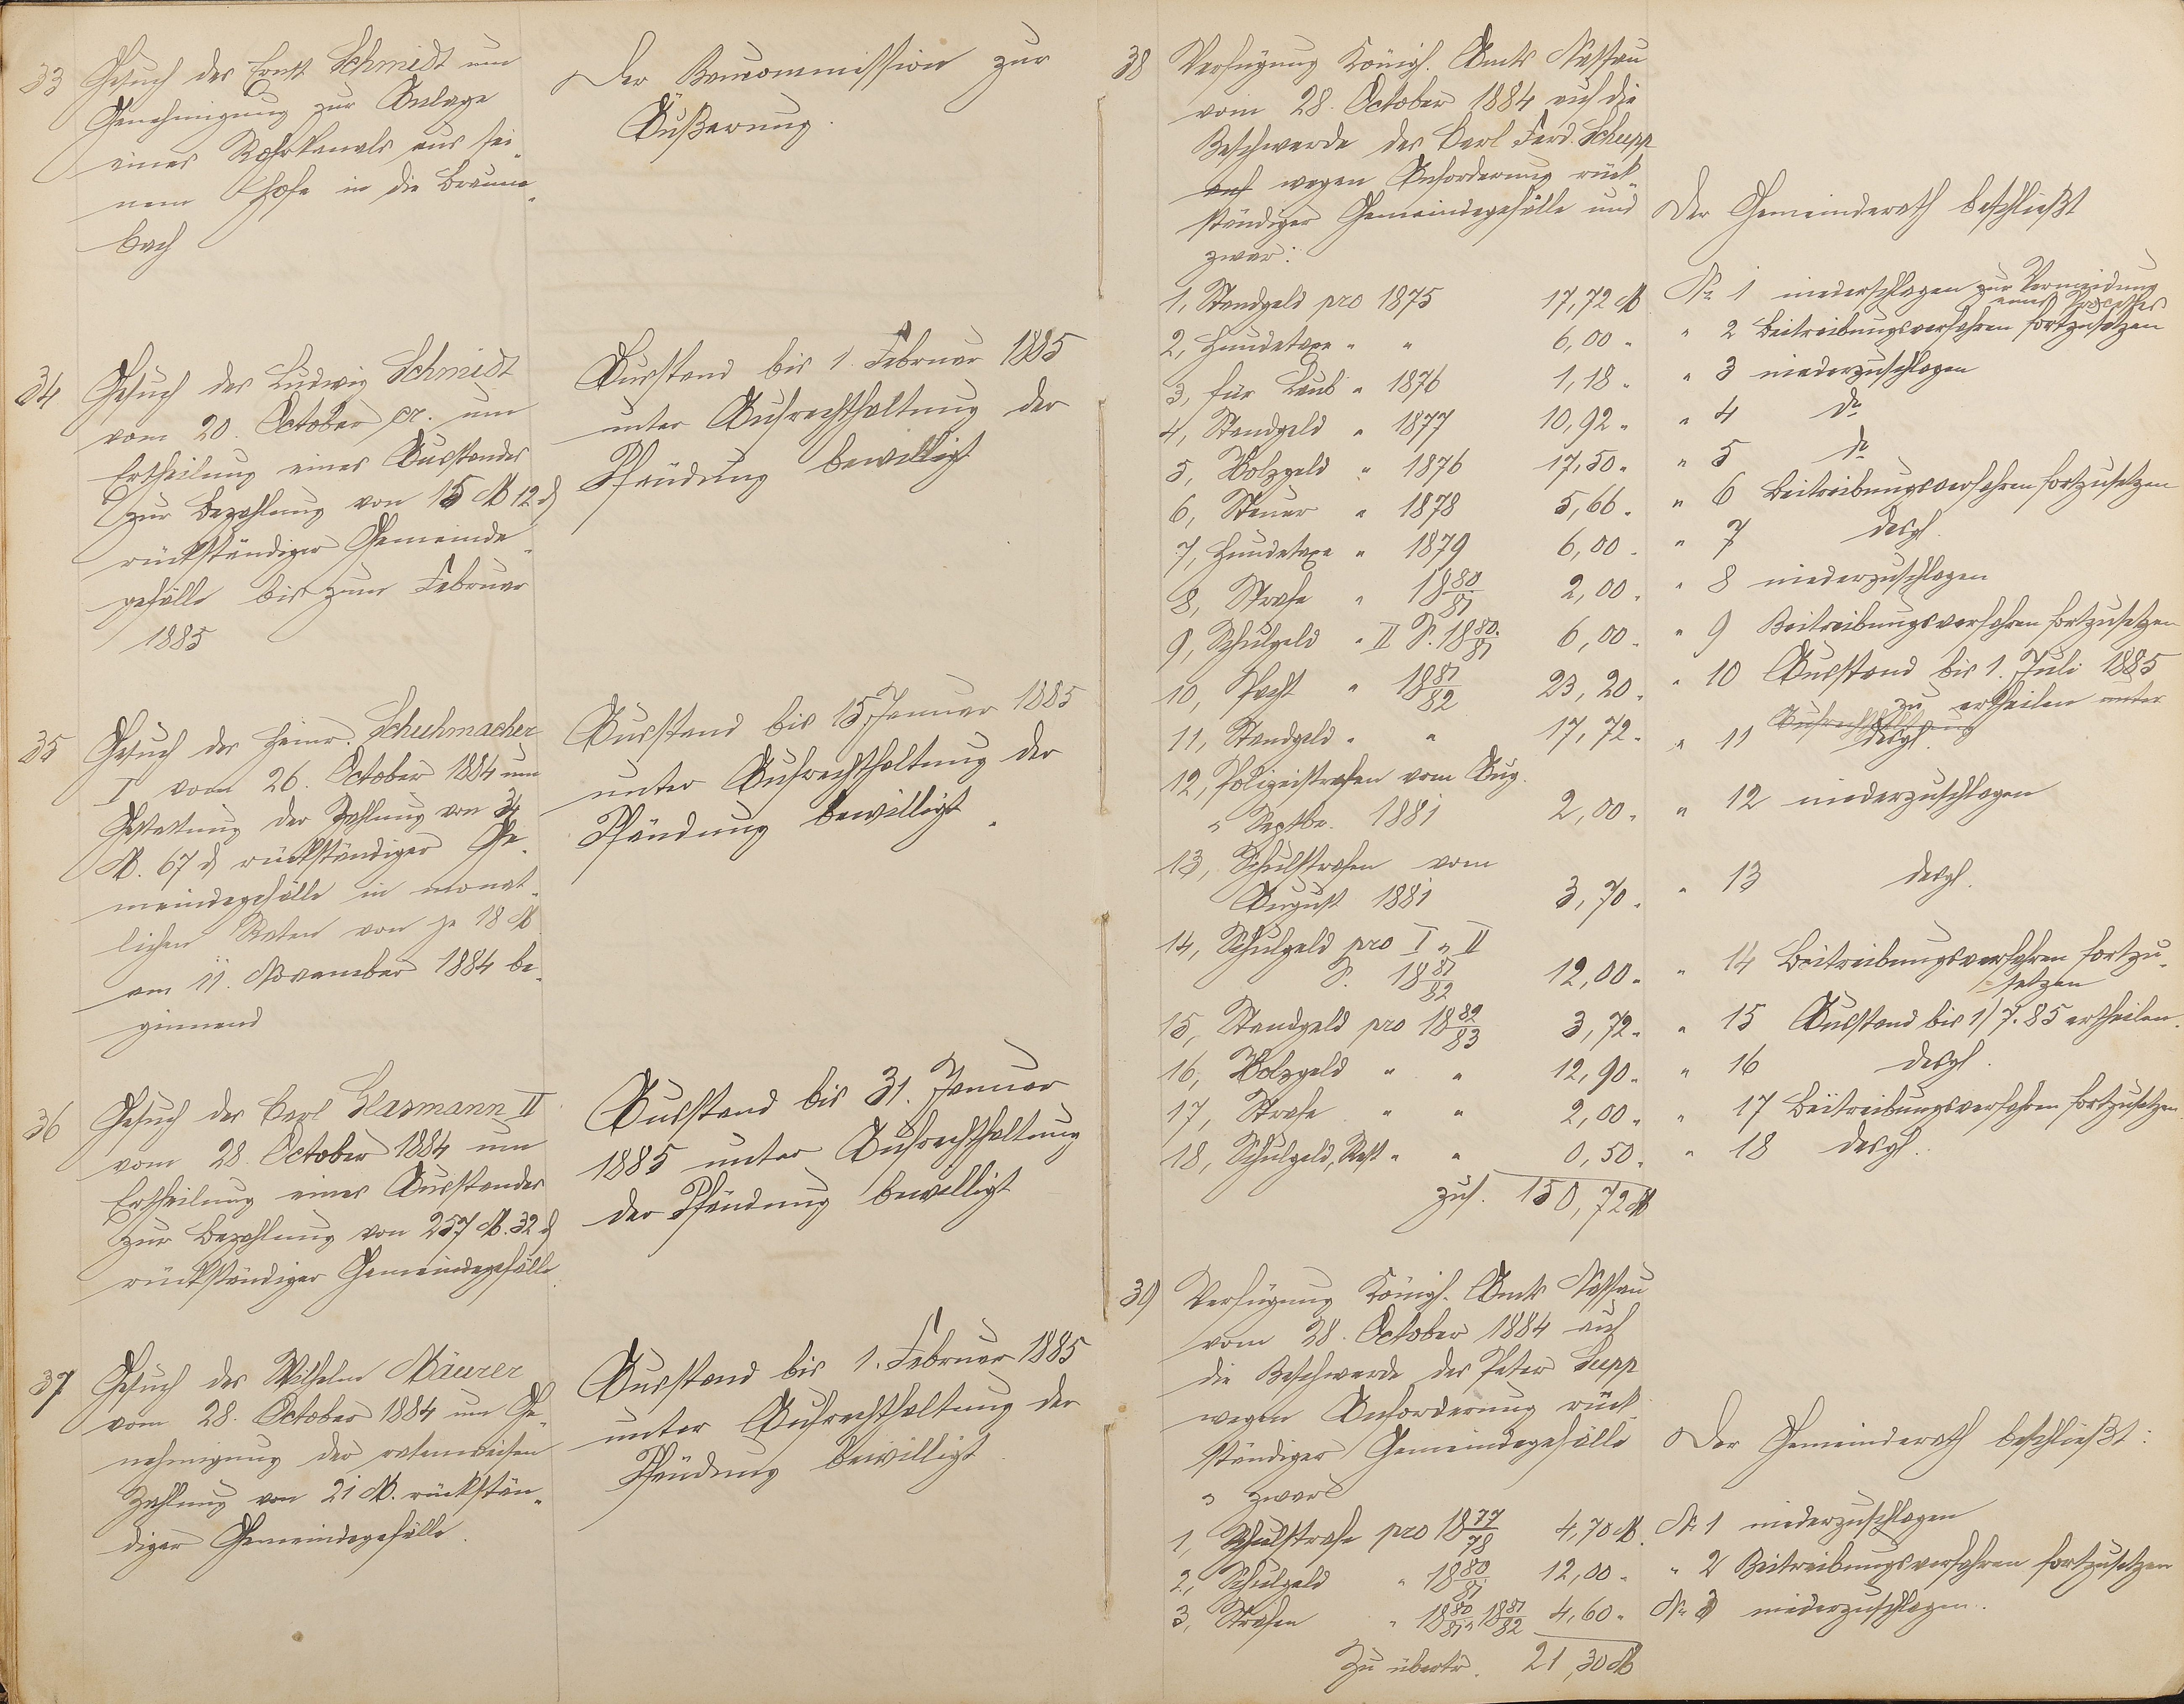 33 Gesuch des Ernst Schmidt um
Genehmigung zur Anlage
eines Rohrkanals aus sei-
nem Hofe in die Braune-
bach
Der Baucommission zur
Äußerung.
34 Gesuch des Ludwig Schmidt
vom 20. October cr. um
Ertheilung eines Ausstandes
zur Bezahlung von 15 M 12 d
rückständiger Gemeinde-
gefälle bis zum Februar
1885
Ausstand bis 1. Februar 1885
unter Aufrechthaltung der
Pfändung bewilligt
35 Gesuch des Heinr. Schuhmacher
I vom 26. October 1884 um
Gestattung der Zahlung von 34
M. 67 d rückständiger Ge-
meindegefälle in monat-
lichen Raten von je 18 M
am 11. November 1884 be-
ginnend
Ausstand bis 15 Januar 1885
unter Aufrechthaltung der
Pfändung bewilligt.
36 Gesuch des Carl Glasmann II
vom 28. October 1884 um
Ertheilung eines Ausstandes
zur Bezahlung von 257 M. 32 d
rückständiger Gemeindegefälle.
Ausstand bis 31. Januar
1885 unter Aufrechthaltung
der Pfändung bewilligt
37 Gesuch des Wilhelm Mäurer
vom 28. October 1884 um Ge-
nehmigung der ratenweisen
Zahlung von 21 M. rückstän-
diger Gemeindegefälle.
Ausstand bis 1. Februar 1885
unter Aufrechthaltung der
Pfändung bewilligt
38 Verfügung Königl. Amts Nassau
vom 28. October 1884 auf die
Beschwerde des Carl Ferd. Schupp
auf wegen Anforderung rück-
ständiger Gemeindegefälle und
zwar:
Der Gemeinderath beschließt
1, Standgeld pro 1875 17,72 M No 1 niederschlagen zur Vermeidung
eines Processes
2, Hundetaxe " " 6,00 " " 2 Beitreibungsverfahren fortzusetzen
3, für Laub " 1876 1,18 " " 3 niederzuschlagen
4, Standgeld " 1877 10,92 " " 4 do
5, Holzgeld " 1876 17,50 " " 5 do
6, Steuer " 1878 5,66 " " 6 Beitreibungsverfahren fortzusetzen
7, Hundetaxe " 1879 6,00 " " 7 desgl.
8, Strafe " 1880/81 2,00 " " 8 niederzuschlagen
9, Schulgeld " II S. 1880/81 6,00 " " 9 Beitreibungsverfahren fortzusetzen
10, Pacht " 1881/82 23,20 " " 10 Ausstand bis 1. Juli 1885
zu ertheilen unter
Aufrechthaltung
11, Standgeld " " 17,72 " " 11 desgl.
12, Polizeistrafen vom Aug.
u Septbr. 1881 2,00 " " 12 niederzuschlagen
13, Schulstrafen vom
August 1881 3,70 " " 13 desgl.
14, Schulgeld pro I u II
S. 1881/82 12,00 " " 14 Beitreibungsverfahren fortzu-
setzen
15, Standgeld pro 1882/83 3,72 " " 15 Ausstand bis 1/7. 85 ertheilen.
16, Holzgeld " " 12,90 " " 16 desgl.
17, Strafe " " 2,00 " " 17 Beitreibungsverfahren fortzusetzen
18, Schulgeld, Rest " " 0,50 " " 18 desgl.
zus. 150,72 M
39 Verfügung Königl. Amts Nassau
vom 28. October 1884 auf
die Beschwerde des Peter Supp
wegen Anforderung rück-
ständiger Gemeindegefälle
u zwar
Der Gemeinderath beschließt:
1, Schulstrafe pro 1877/78 4,70 M. No 1 niederzuschlagen
2, Schulgeld " 1880/81 12,00 " " 2 Beitreibungsverfahren fortzusetzen
3, Strafen " 1880/81 u 1881/82 4,60 " No 3 niederzuschlagen.
Zu übertr. 21,30 M